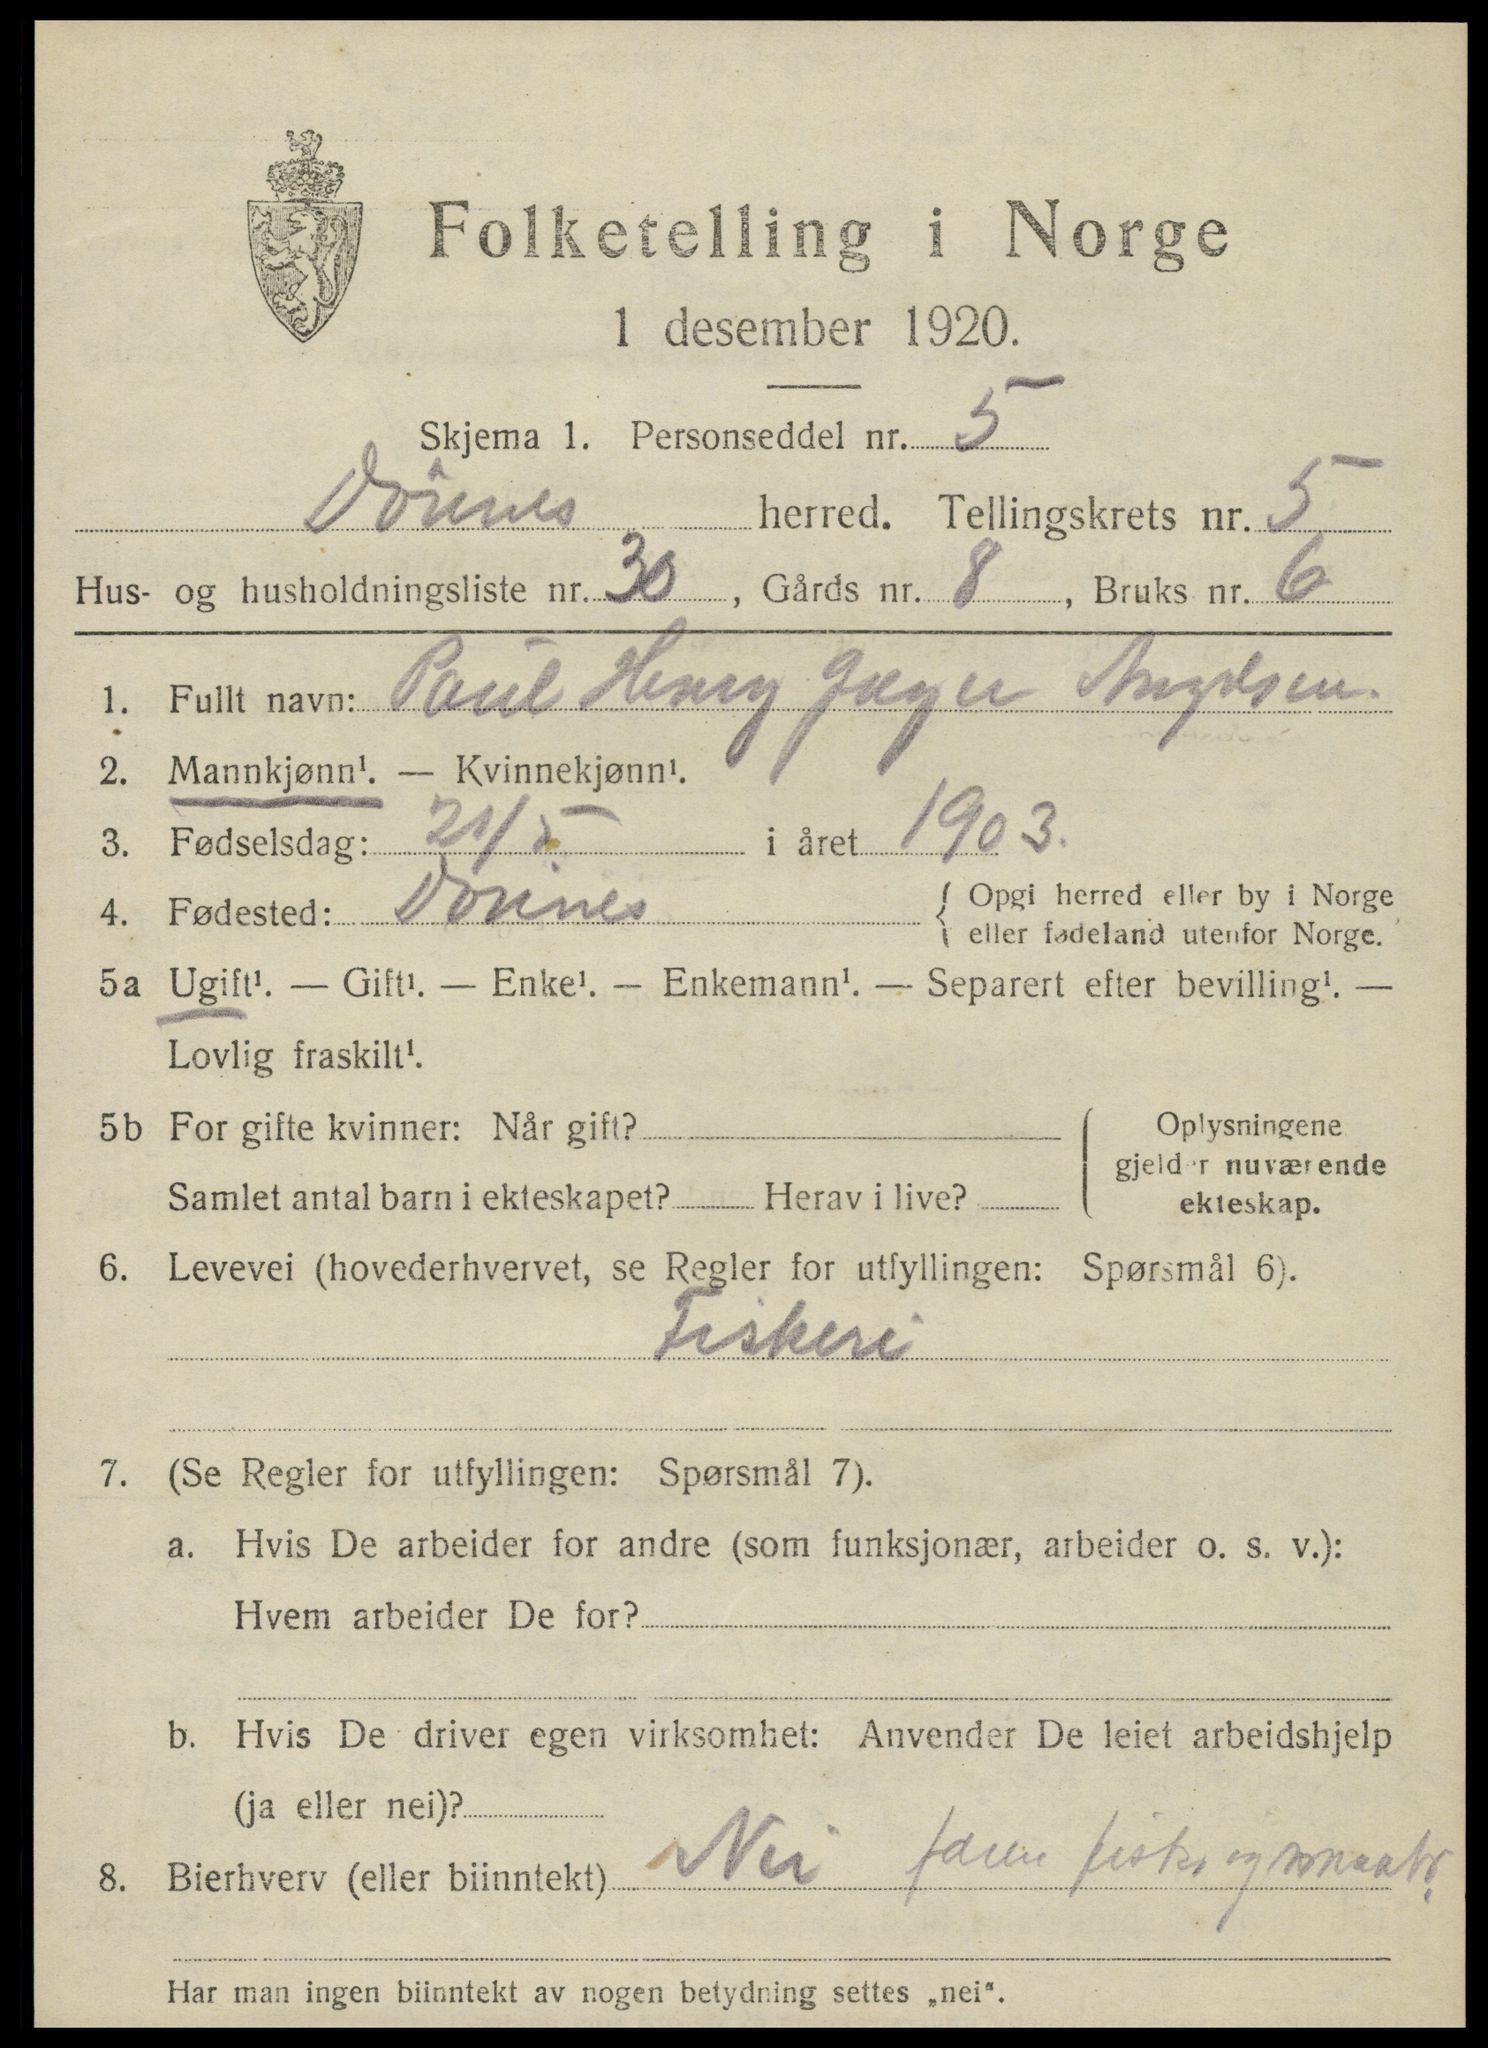 Folketelling i Norge
1 desember 1920.
Skjema 1. Personseddel nr. 5
Dönnes herred. Tellingskrets nr. 5
Hus- og husholdningsliste nr. 30, Gårds nr. 8, Bruks nr. 6
1. Fullt navn: Paul Henry Jæger
2. Mannkjønn¹. — Kvinnekjønn¹.
3. Fødselsdag: 21/5 i året 1903.
4. Fødested: Dönnes { Opgi herred eller by i Norge
eller fødeland utenfor Norge.
5a Ugift¹. — Gift¹. — Enke¹. — Enkemann¹. — Separert efter bevilling¹. —
Lovlig fraskilt¹.
5b For gifte kvinner: Når gift?
Samlet antal barn i ekteskapet? Herav i live?
Oplysningene
gjelder nuværende
ekteskap.
6. Levevei (hovederhvervet, se Regler for utfyllingen: Spørsmål 6).
Fiskeri
7. (Se Regler for utfyllingen: Spørsmål 7).
a. Hvis De arbeider for andre (som funksjonær, arbeider o. s. v.):
Hvem arbeider De for?
b. Hvis De driver egen virksomhet: Anvender De leiet arbeidshjelp
(ja eller nei)?
8. Bierhverv (eller biinntekt) Nei faren fisker og
Har man ingen biinntekt av nogen betydning settes „nei".